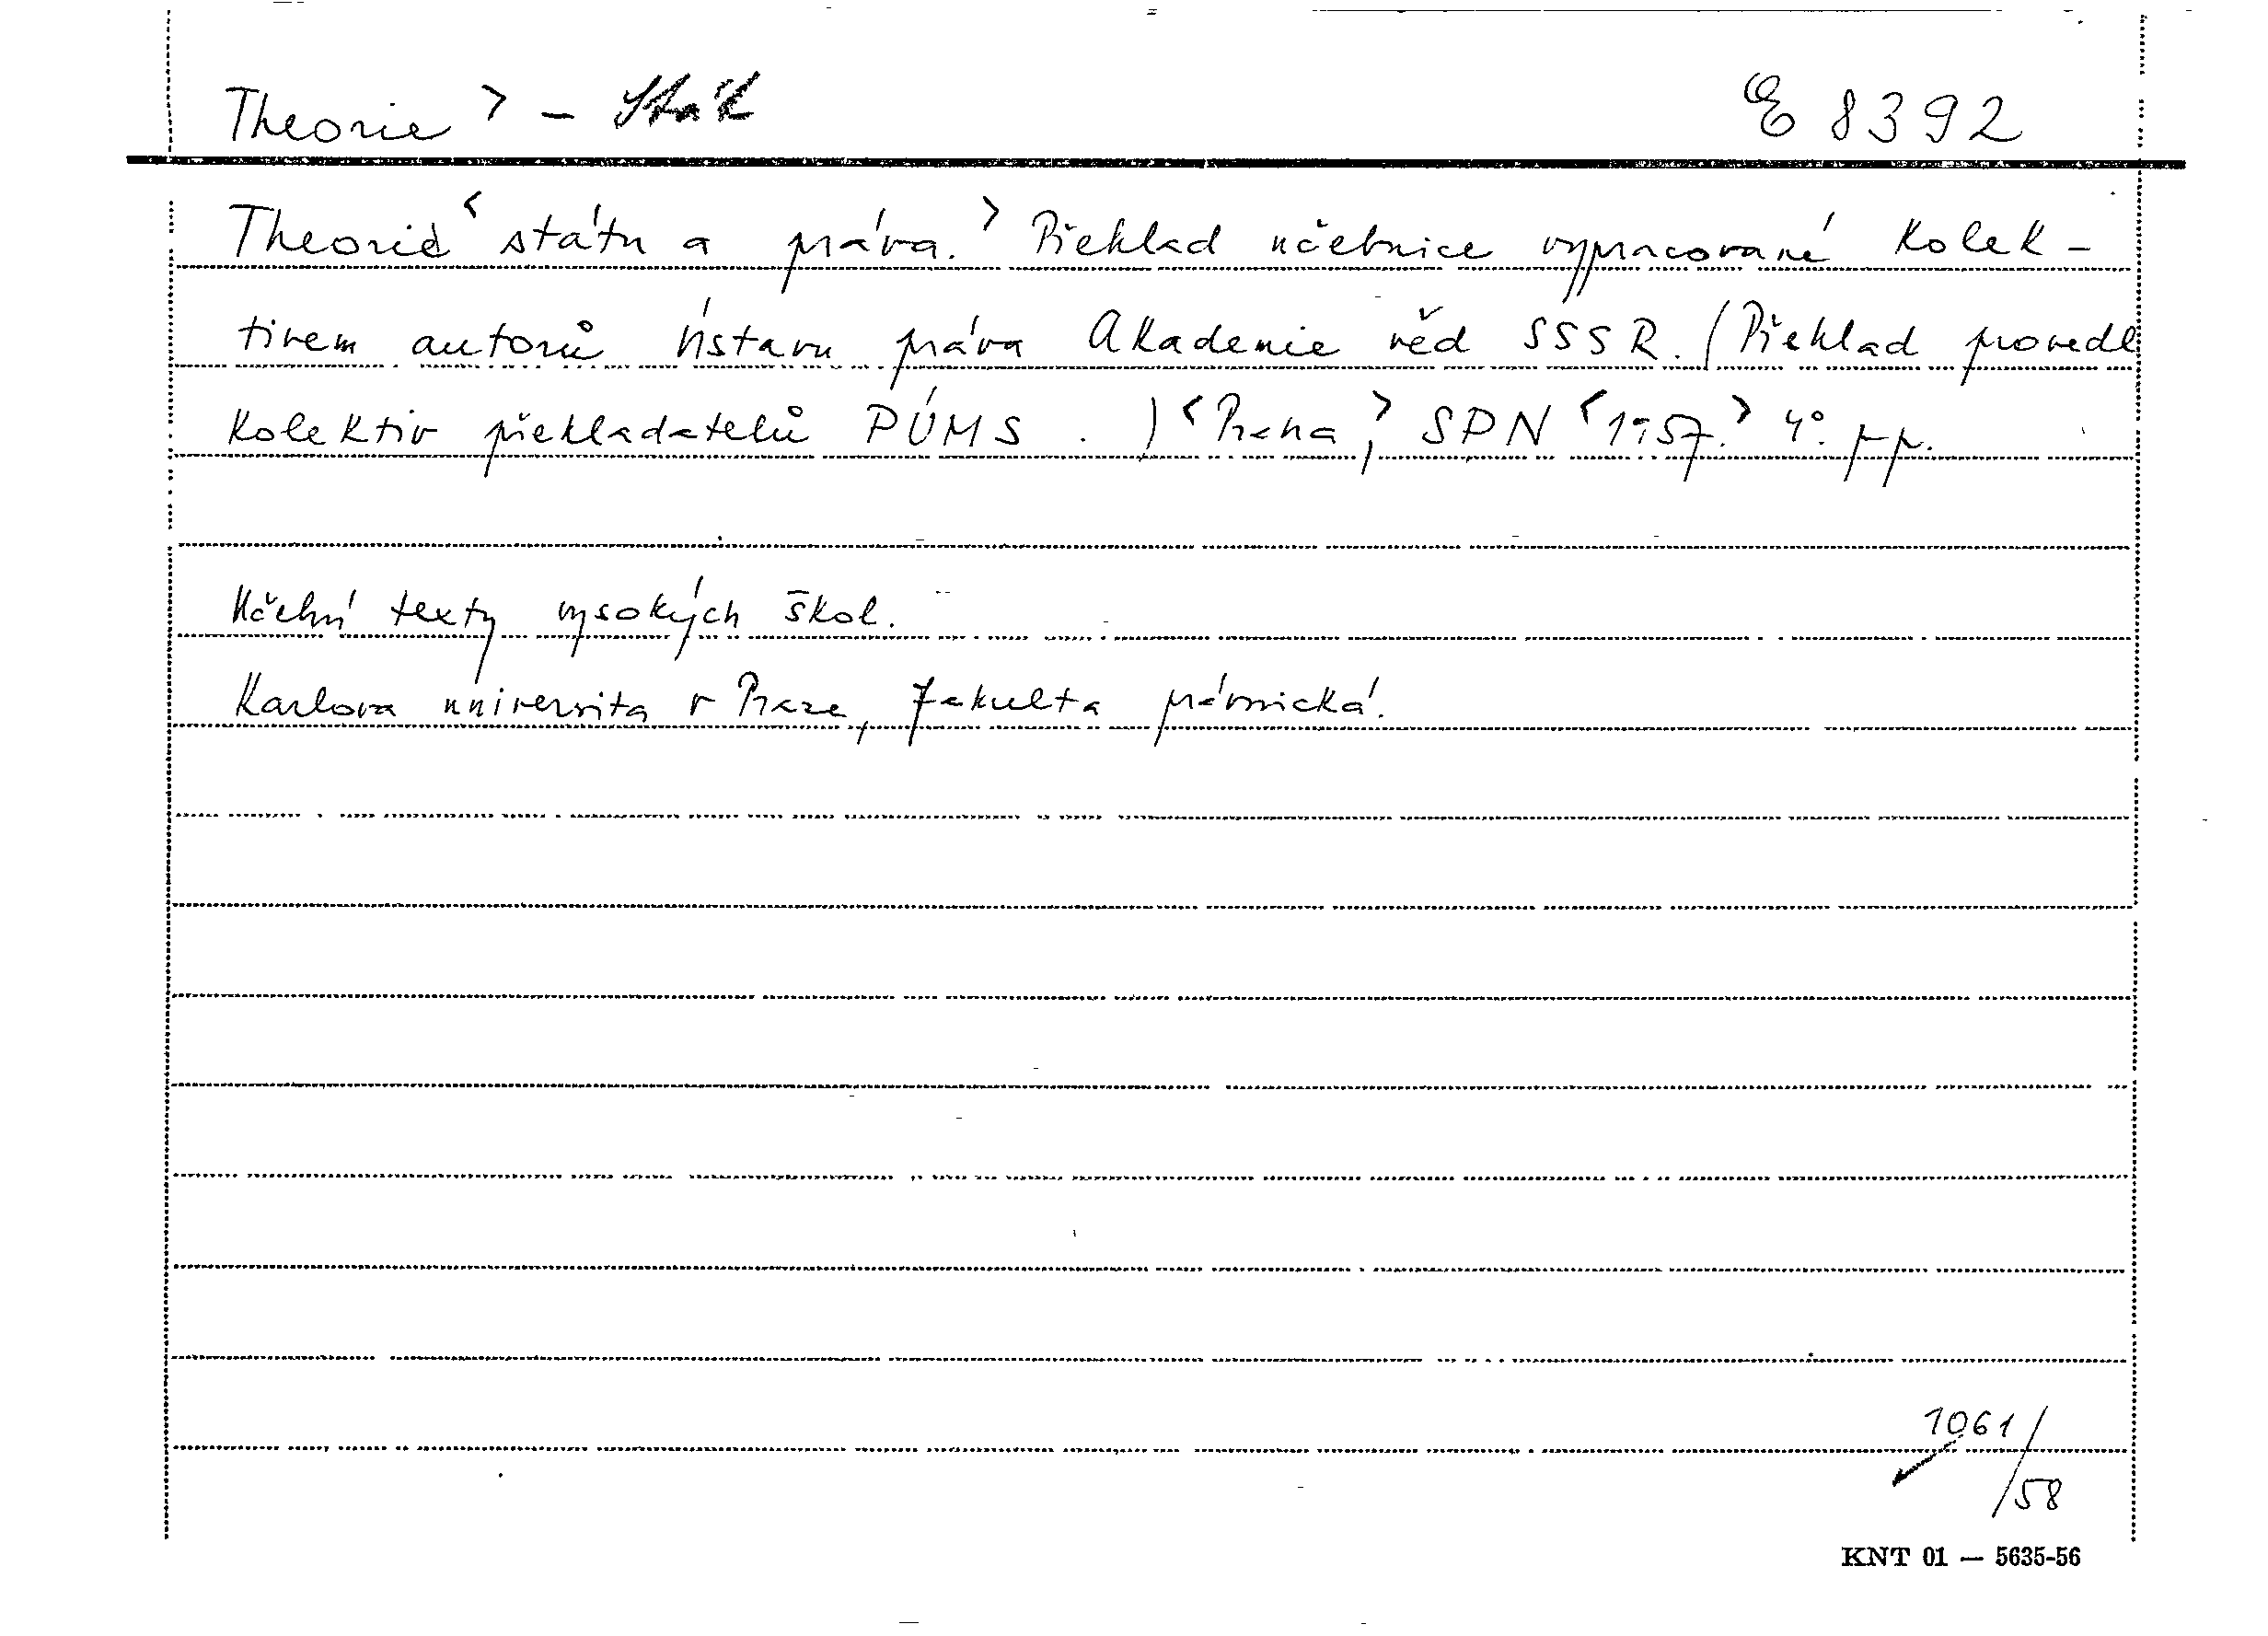 Theorie > – Stát E 8392
Theorie < státu a práva. > Překlad učebnice vypracované kolek-
tivem autorů Ústavu práva Akademie věd SSSR. (Překlad provedl
kolektiv překladatelů PÚMS . ) < Praha, > SPN < 1957. > 4°. pp.
Učební texty vysokých škol.
Karlova universita v Praze, fakulta právnická.
1061/
58
KNT 01 — 5635-56